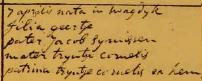 7 aprilis nata in wagdyk
filia geerte
pater Jacob Symissen
mater tryntje cornelis
patrina tryntje cornelis en hem